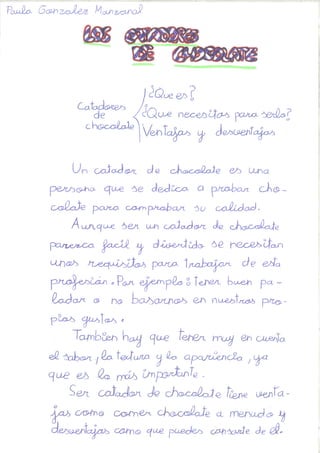 Paula Gonzalez Manzanal
LOS CATADORES
DE CHOCOLATE
¿Que es?
Catadores
de
¿Que necesitas para serlo?
chocolate
Ventajas y desventajas
Un catador de chocolate es una
persona que se dedica a probar cho-
colate para comprobar su calidad.
Aunque ser un catador de chocolate
parezca facil y divertido se necesitan
unos requisitos para trabajar de esta
profesión. Por ejemplo: Tener buen pa-
ladar o no basarnos en nuestros pro-
pios gustos.
Tambien hay que tener muy en cuenta
el sabor, la textura y la apariencia, ya
que es lo más importante.
Ser catador de chocolate tiene venta-
jas como comer chocolate a menudo y
desventajas como que puedes cansarte de él.